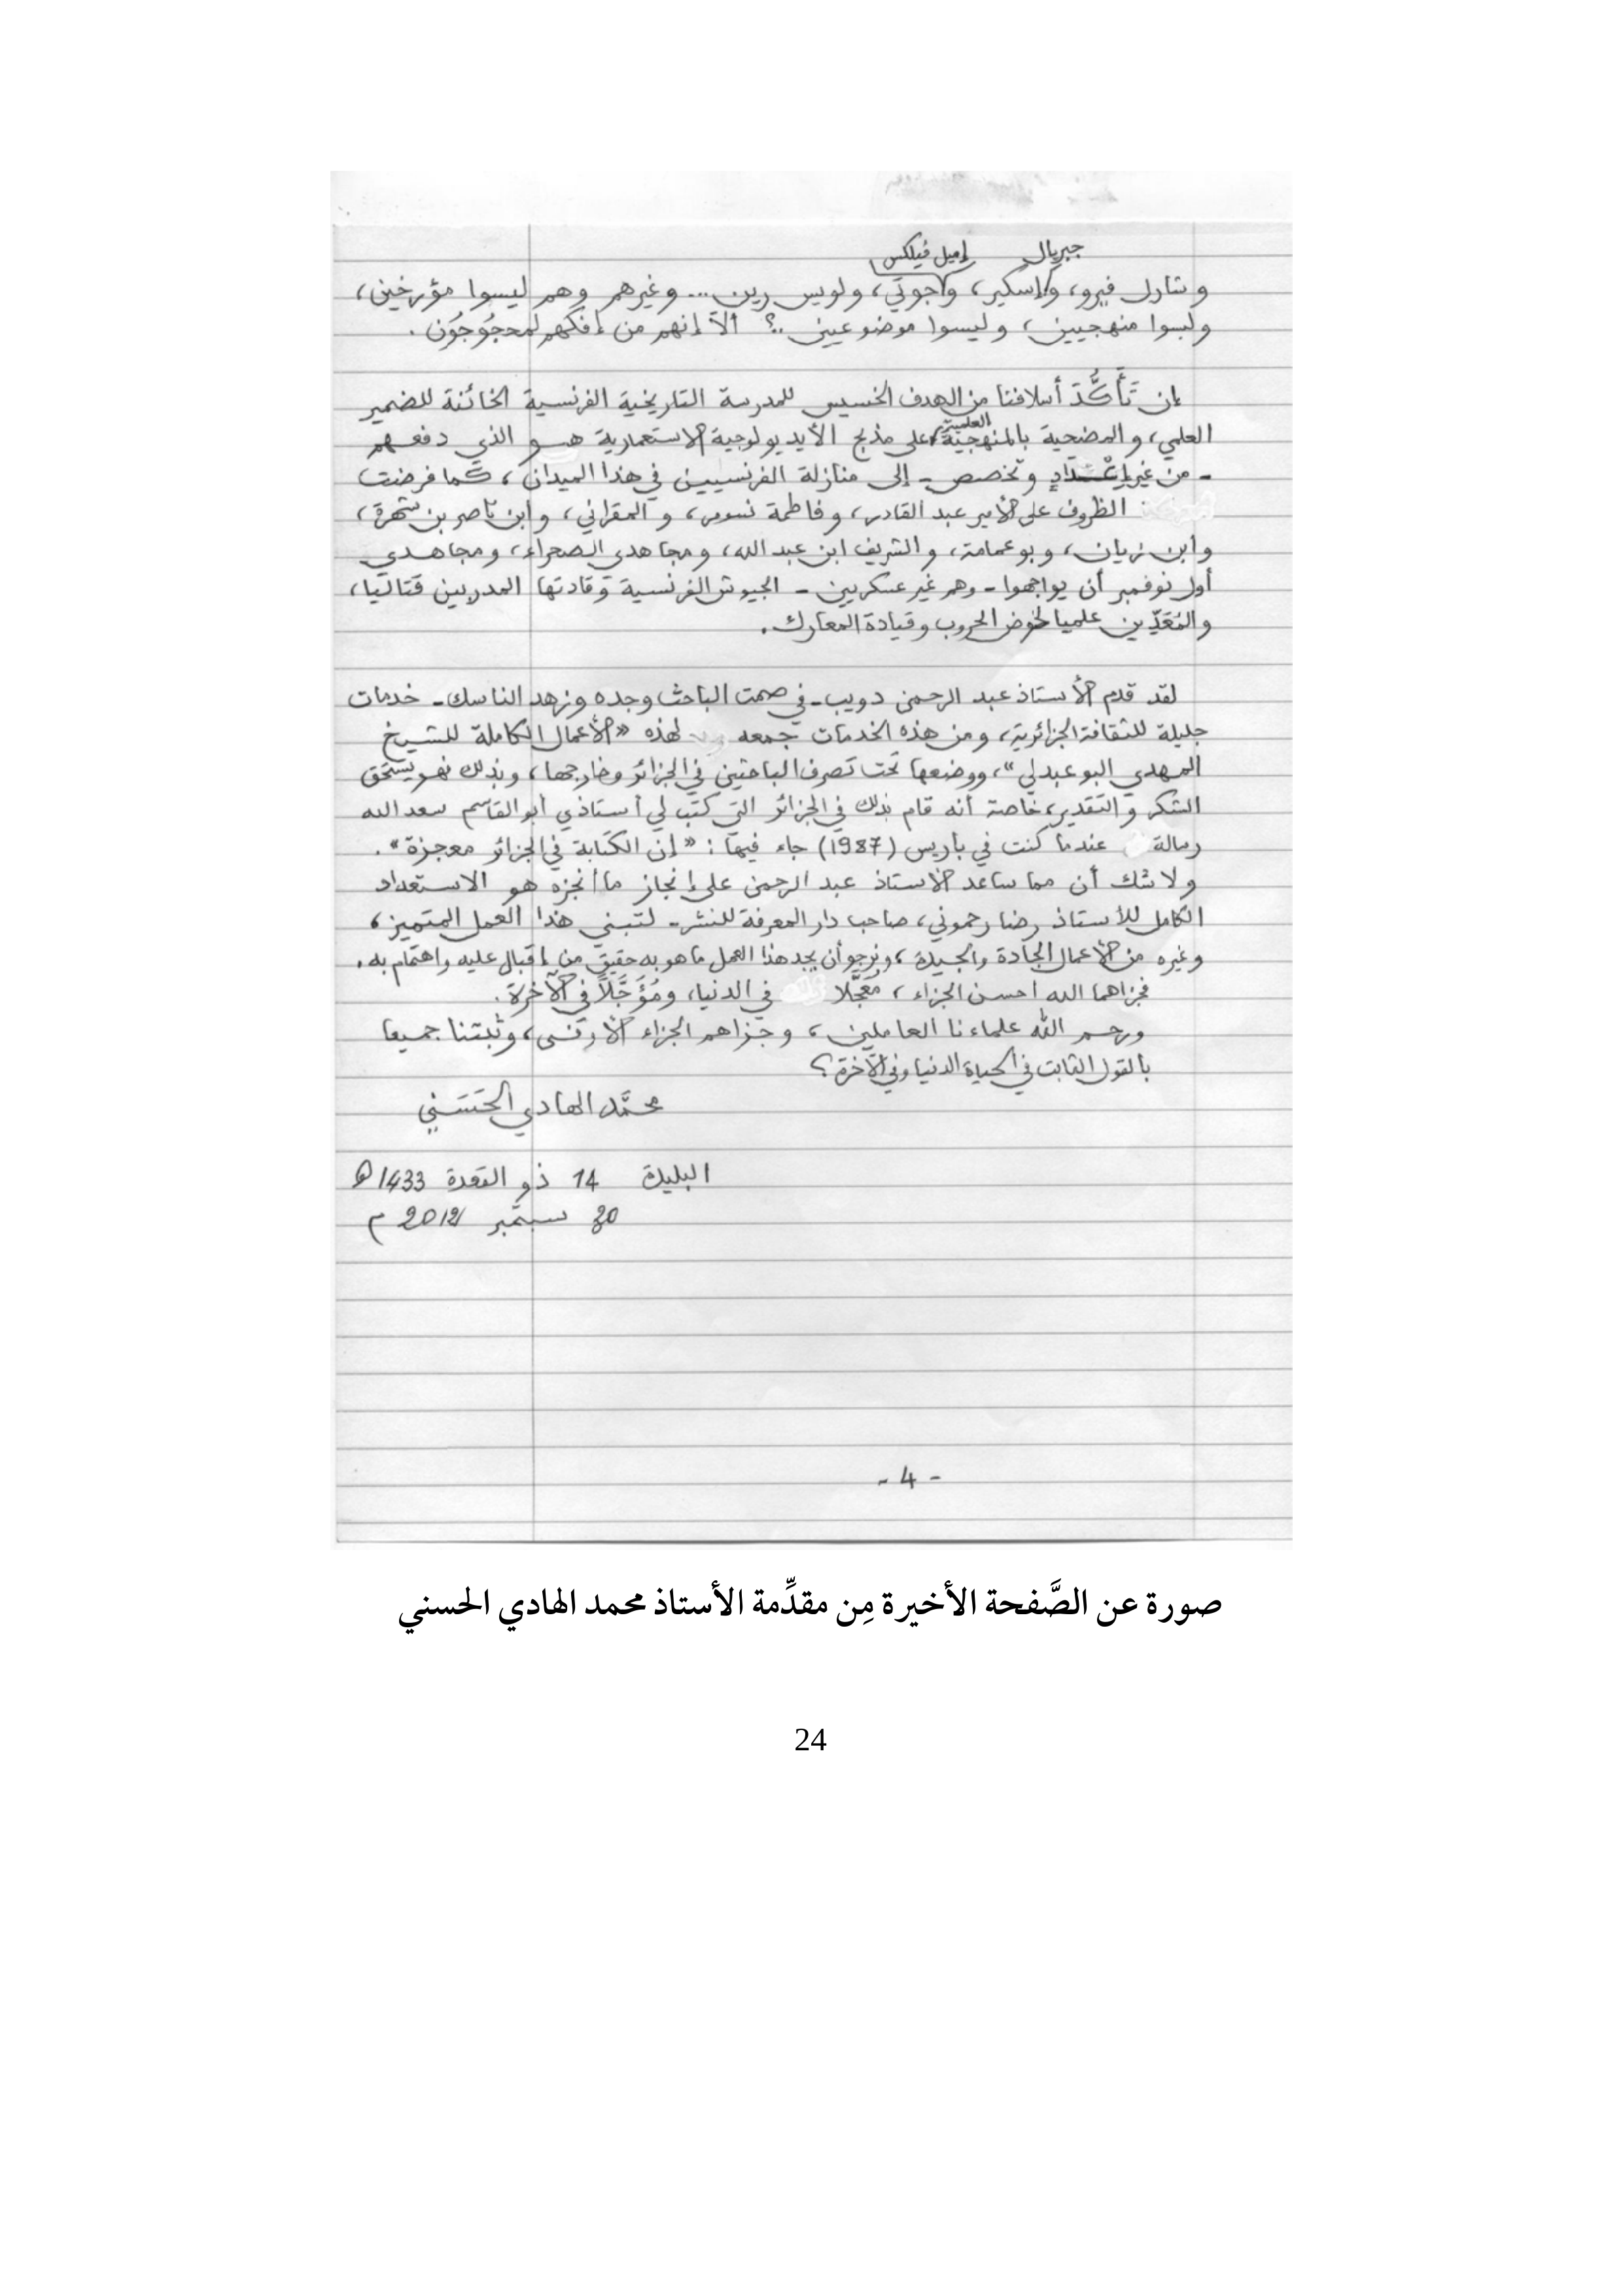 جبريال إميل فيلكس
وشارل فيرو، واسكير، وجوتي، ولويس رين... وغيرهم وهم ليسوا مؤرخين،
وليسوا منهجيين، وليسوا موضوعيين..؟ ألاَ إنهم من إفكهم لمحجُوجُون.
إن تَأَكُّدَ أسلافنا من الهدف الخسيس للمدرسة التاريخية الفرنسية الخائنة للضمير
العلمي، والمضحية بالمنهجية العلمية على مذبح الأيديولوجية الاستعمارية هو الذي دفعهم
- من غير إعداد وتخصص - إلى منازلة الفرنسيين في هذا الميدان، كما فرضت
الظروف على الأمير عبد القادر، وفاطمة نسومر، والمقراني، وابن ناصر بن شهرة،
وابن زيان، وبوعمامة، والشريف ابن عبد الله، ومجاهدي الصحراء، ومجاهدي
أول نوفمبر أن يواجهوا - وهم غير عسكريين - الجيوش الفرنسية وقادتها المدربين قتاليا،
والمُعَدِّين علميا لخوض الحروب وقيادة المعارك.
لقد قدم الأستاذ عبد الرحمن دويب - في صمت الباحث وجده وزهد الناسك - خدمات
جليلة للثقافة الجزائرية، ومن هذه الخدمات جمعه لهذه «الأعمال الكاملة للشيخ
المهدي البوعبدلي»، ووضعها تحت تصرف الباحثين في الجزائر وخارجها، وبذلك فهو يستحق
الشكر والتقدير، خاصة أنه قام بذلك في الجزائر التي كتب لي أستاذي أبو القاسم سعد الله
رسالة عندما كنت في باريس (1987) جاء فيها: «إن الكتابة في الجزائر معجزة».
ولا شك أن مما ساعد الأستاذ عبد الرحمن على إنجاز ما أنجزه هو الاستعداد
الكامل للأستاذ رضا رحموني، صاحب دار المعرفة للنشر - لتبني هذا العمل المتميز،
وغيره من الأعمال الجادة والجيدة، ونرجو أن يجد هذا العمل ما هو به حقيق من إقبال عليه واهتمام به.
فجزاهما الله أحسن الجزاء، مُعَجَّلا في الدنيا، ومُؤَجَّلاً في الآخرة.
ورحم الله علماءنا العاملين، وجزاهم الجزاء الأوفى، وثبتنا جميعا
بالقول الثابت في الحياة الدنيا وفي الآخرة؟
محمَّد الهادي الحَسَني
البليدة 14 ذو القعدة 1433 هـ
30 سبتمبر 2012 م
- 4 -
صورة عن الصَّفحة الأخيرة مِن مقدِّمة الأستاذ محمد الهادي الحسني
24